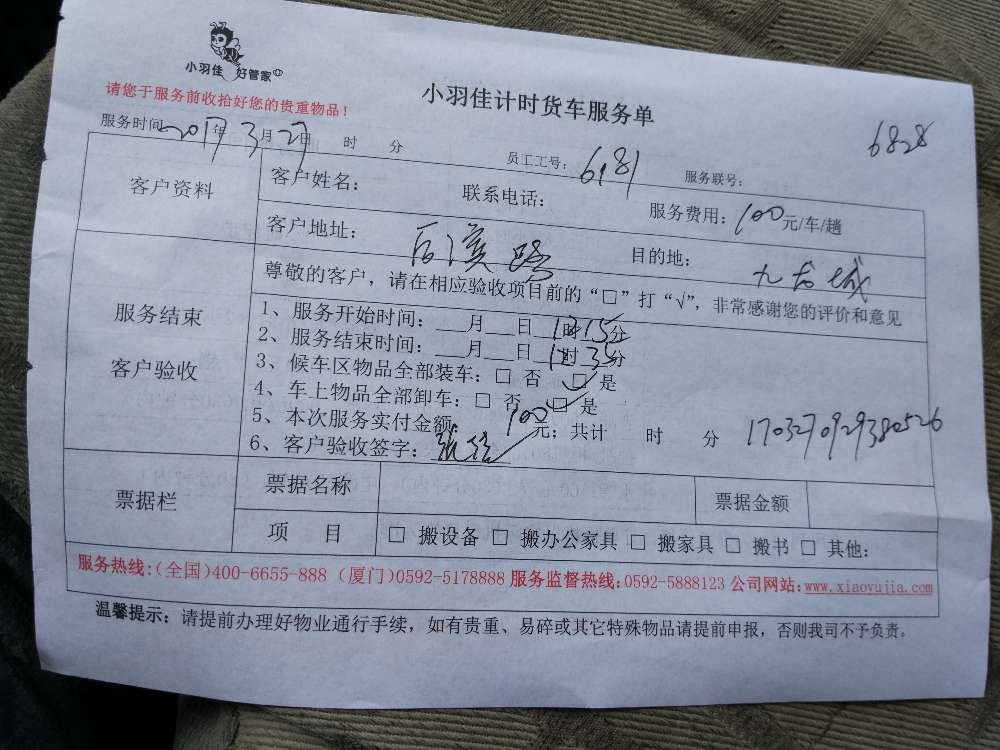 小羽佳 好管家
小羽佳计时货车服务单
请您于服务前收拾好您的贵重物品！
服务时间 2017年3月27日 时 分
员工工号：6181 服务联号： 6828
客户资料
客户姓名： 联系电话： 服务费用：100元/车/趟
客户地址： 后溪路 目的地： 九龙城
服务结束
客户验收
尊敬的客户，请在相应验收项目前的“□”打“√”，非常感谢您的评价和意见
1、服务开始时间：___月___日 时15分
2、服务结束时间：___月___日 时35分
3、候车区物品全部装车：□ 否 □ 是
4、车上物品全部卸车：□ 否 □ 是
5、本次服务实付金额：100元；共计 时 分 170327092938０526
6、客户验收签字：张
票据栏
票据名称 票据金额
项 目 □ 搬设备 □ 搬办公家具 □ 搬家具 □ 搬书 □ 其他：
服务热线：(全国)400-6655-888 (厦门)0592-5178888 服务监督热线：0592-5888123 公司网站：www.xiaoyujia.com
温馨提示：请提前办理好物业通行手续，如有贵重、易碎或其它特殊物品请提前申报，否则我司不予负责。